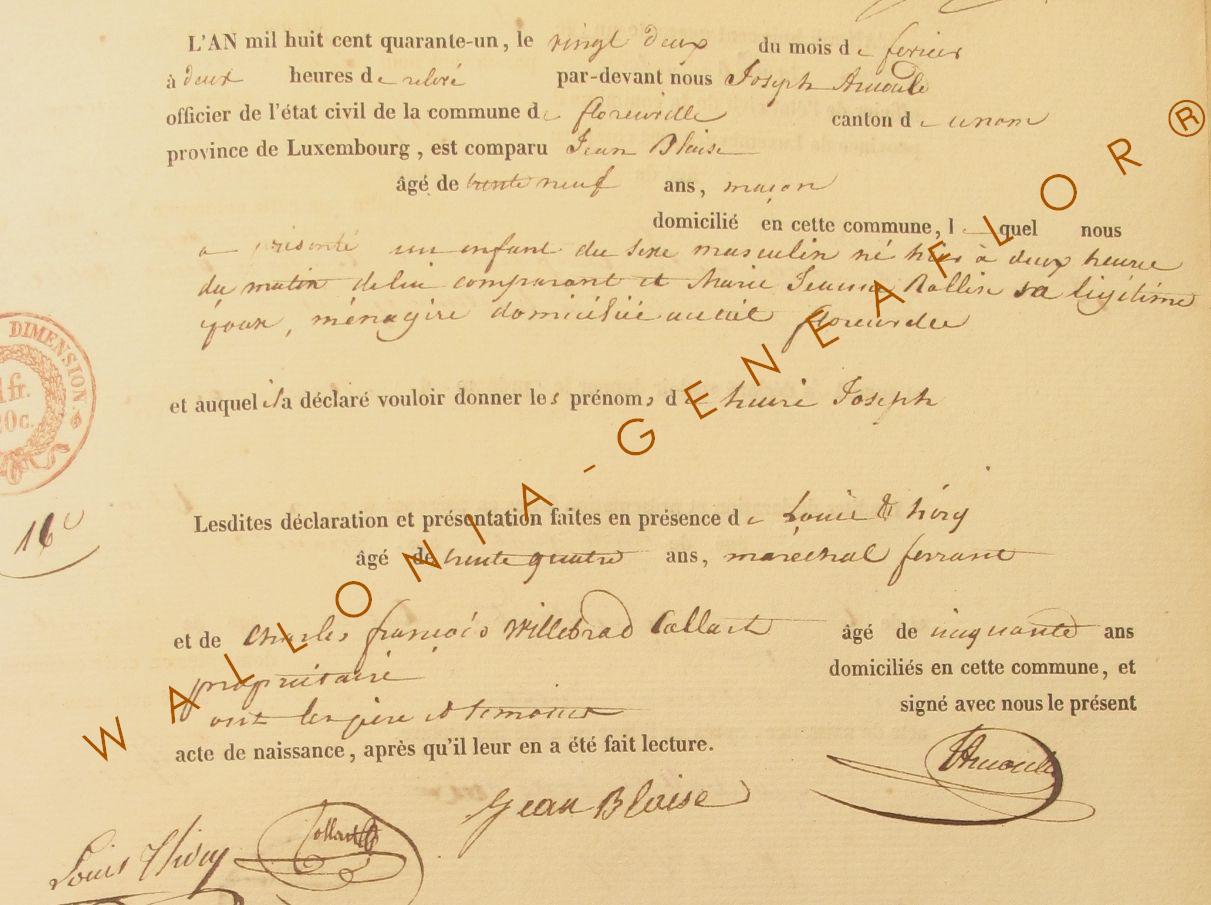 L'AN mil huit cent quarante-un, le vingt deux du mois de fevrier
à deux heures de relevé par-devant nous Joseph Arnould
officier de l'état civil de la commune de florenville canton de
province de Luxembourg, est comparu Jean Blaise
âgé de trente neuf ans, maçon
domicilié en cette commune, lequel nous
a présenté un enfant du sexe masculin né hier à deux heure
du matin de lui comparant et Marie Jeanne Rollin sa légitime
épouse, ménagère domiciliée florenville
et auquel il a déclaré vouloir donner les prénoms de henri Joseph
Lesdites déclaration et présentation faites en présence de Louis thiry
âgé de trente quatre ans, maréchal ferrant
et de Charles françois Willebrod Collart âgé de cinquante ans
propriétaire domiciliés en cette commune, et
ont les père et témoins signé avec nous le présent
acte de naissance, après qu'il leur en a été fait lecture.
Arnould
Jean Blaise
Louis Thiry Collart
DIMENSION.
1fr.
20c.
16
WALLONIA-GENEAFLOR®